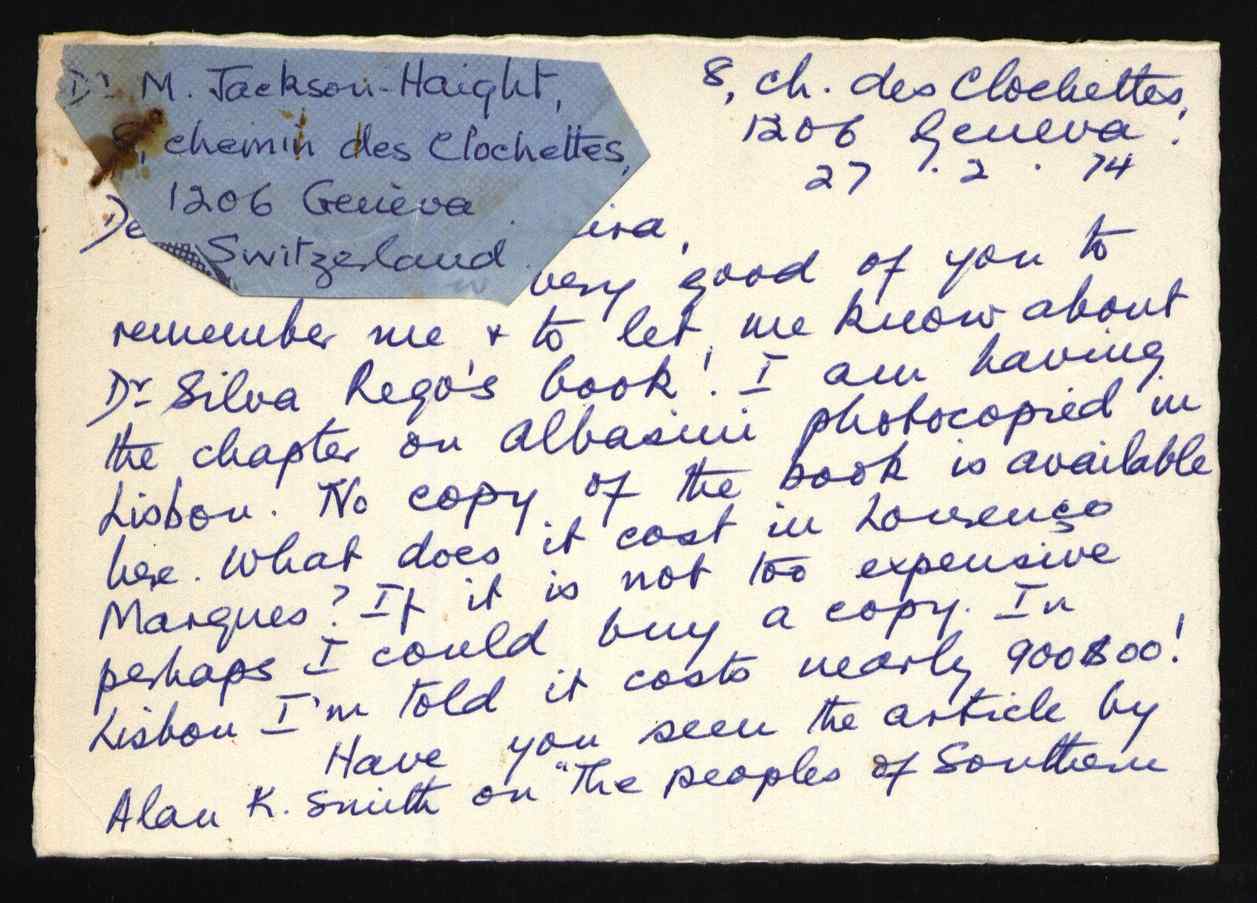 Dr M. Jackson-Haight,
8, chemin des Clochettes,
1206 Genèva
Switzerland
8, ch. des Clochettes,
1206 Geneva.
27 . 2 . 74
De
ira,
very good of you to
remember me & to let me know about
Dr Silva Rego's book! I am having
the chapter on Albasini photocopied in
Lisbon. No copy of the book is available
here. What does it cost in Lourenço
Marques? If it is not too expensive
perhaps I could buy a copy. In
Lisbon I'm told it costs nearly 900$00!
Have you seen the article by
Alan K. Smith on "The peoples of Southern